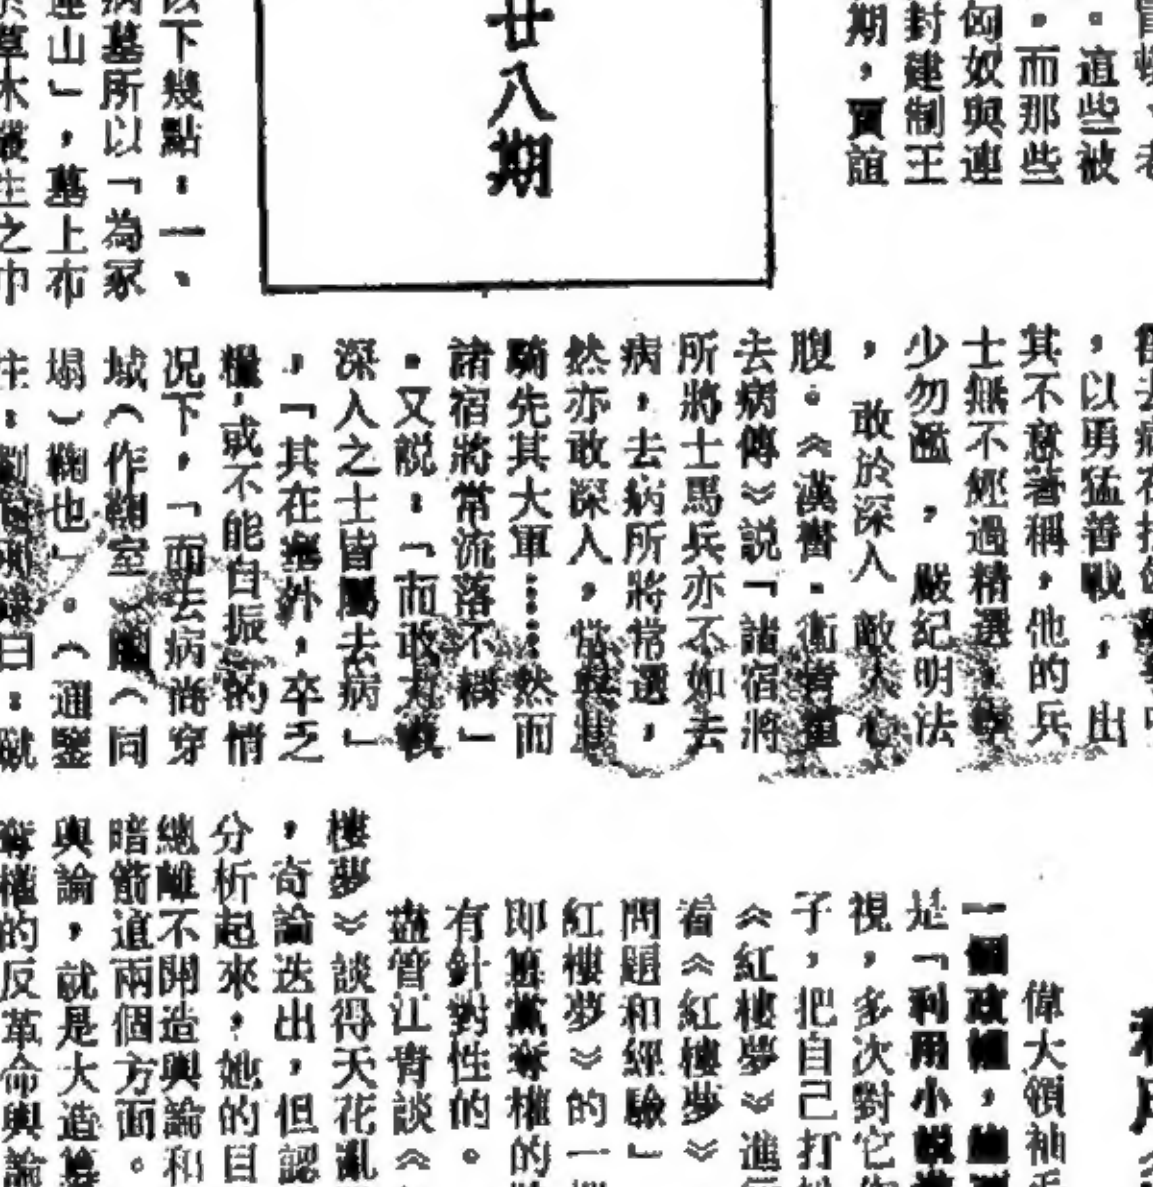 廿八期
。這些被
。而那些
匈奴與連
封建制王
期，賈誼
以下幾點：一、
病墓所以「為冢
連山」，墓上布
，以勇猛善戰，出
其不意著稱，他的兵
士無不經過精選，
少勿濫，嚴紀明法
，敢於深入敵人心
腹。《漢書·衛青
去病傳》説「諸宿將
所將士馬兵亦不如去
病，去病所將常選，
然亦敢深入，常與壯
騎先其大軍……然而
諸宿將常流落不耦」
。又説：「而敢力戰
深入之士皆屬去病」
，「其在塞外，卒乏
糧，或不能自振的情
况下，「而去病尚穿
域（作鞠室）蹋（同
塌）鞠也」。（通鑒
偉大領袖
一個政權，
是「利用小説
視，多次對它
子，把自己打
《紅樓夢》進
看《紅樓夢》
問題和經驗」
紅樓夢》的一
即篡黨奪權的
有針對性的。
儘管江青談《
樓夢》談得天花亂
，奇論迭出，但認
分析起來，她的目
總離不開造輿論和
暗箭這兩個方面。
輿論，就是大造
奪權的反革命輿論